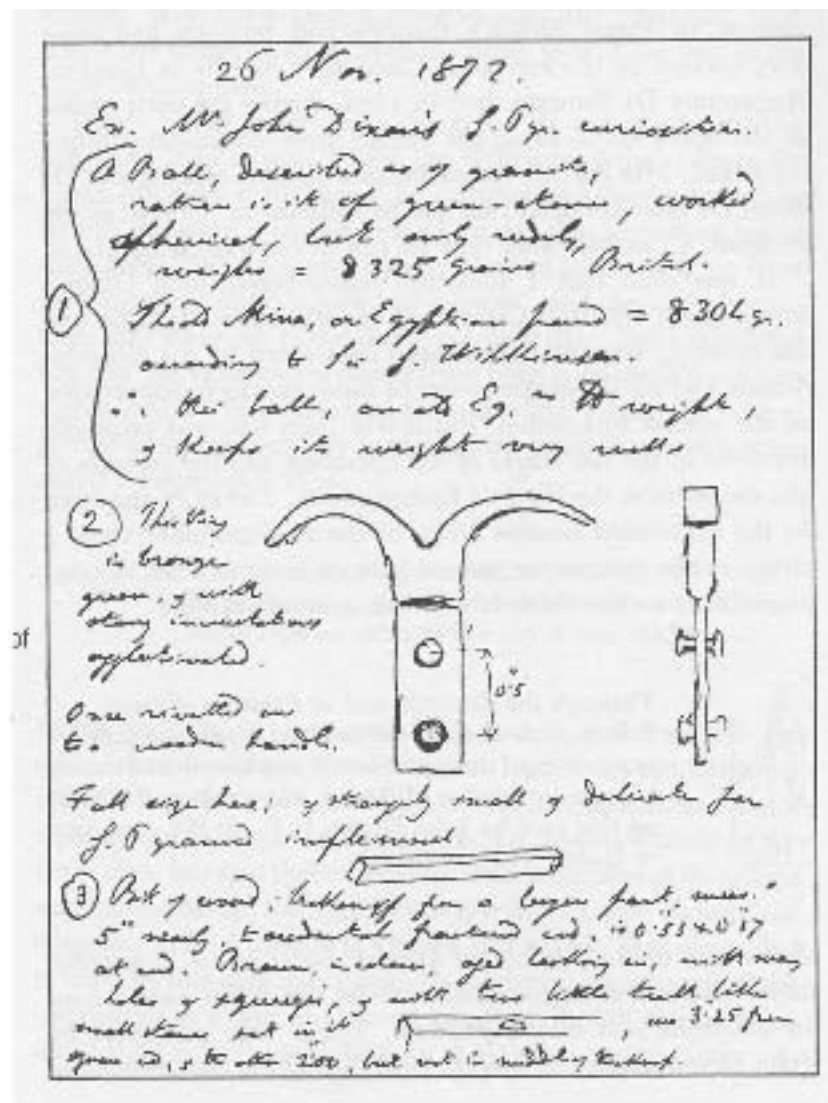 26 Nov. 1872.
Ex. Mr. John Dixon's G. Pyr. curiosities.
A Ball, described as of granite,
rather is it of green-stone, worked
spherical, but only rudely,
weighs = 8325 grains British.
1
Mina, or Egyptian pound = 8304 gr.
according to Sir G. Wilkinson.
∴ this ball, an old Eg.ⁿ ℔ weight,
& keeps its weight very well.
2
in bronze
green, & with
stony incrustations
of
Once rivetted on
to a wooden handle.
0"5
Full size here, & strangely small & delicate for
G. Pyramid implement
3 Bit of wood broken off from a larger part,
5" nearly, to accidental fractured end,
at end. Brown, aged looking
holes & squeezes, & with two little tooth like
small stones set in it
3.25 from
one end, & the other 2.00, but not in middle of thickness